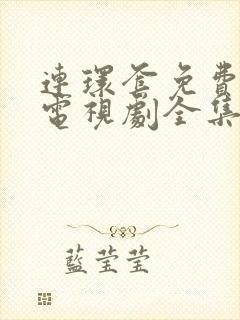 連環套免費
電視劇全集
藍莹莹